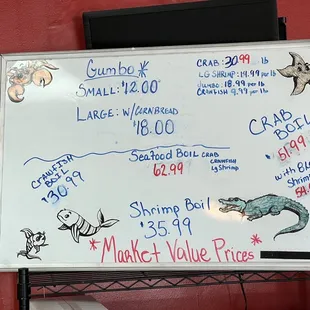 Gumbo*
Small: $12.00
Large: w/Cornbread
$18.00
Crab: 30.99 lb
Lg Shrimp: 19.99 per lb
Jumbo: 18.99 per lb
Crawfish 9.99 per lb
Seafood Boil Crab
Crawfish
Lg Shrimp
62.99
Crawfish
Boil
$30.99
Crab
Boil
with
Shrimp
Shrimp Boil
$35.99
*Market Value Prices*